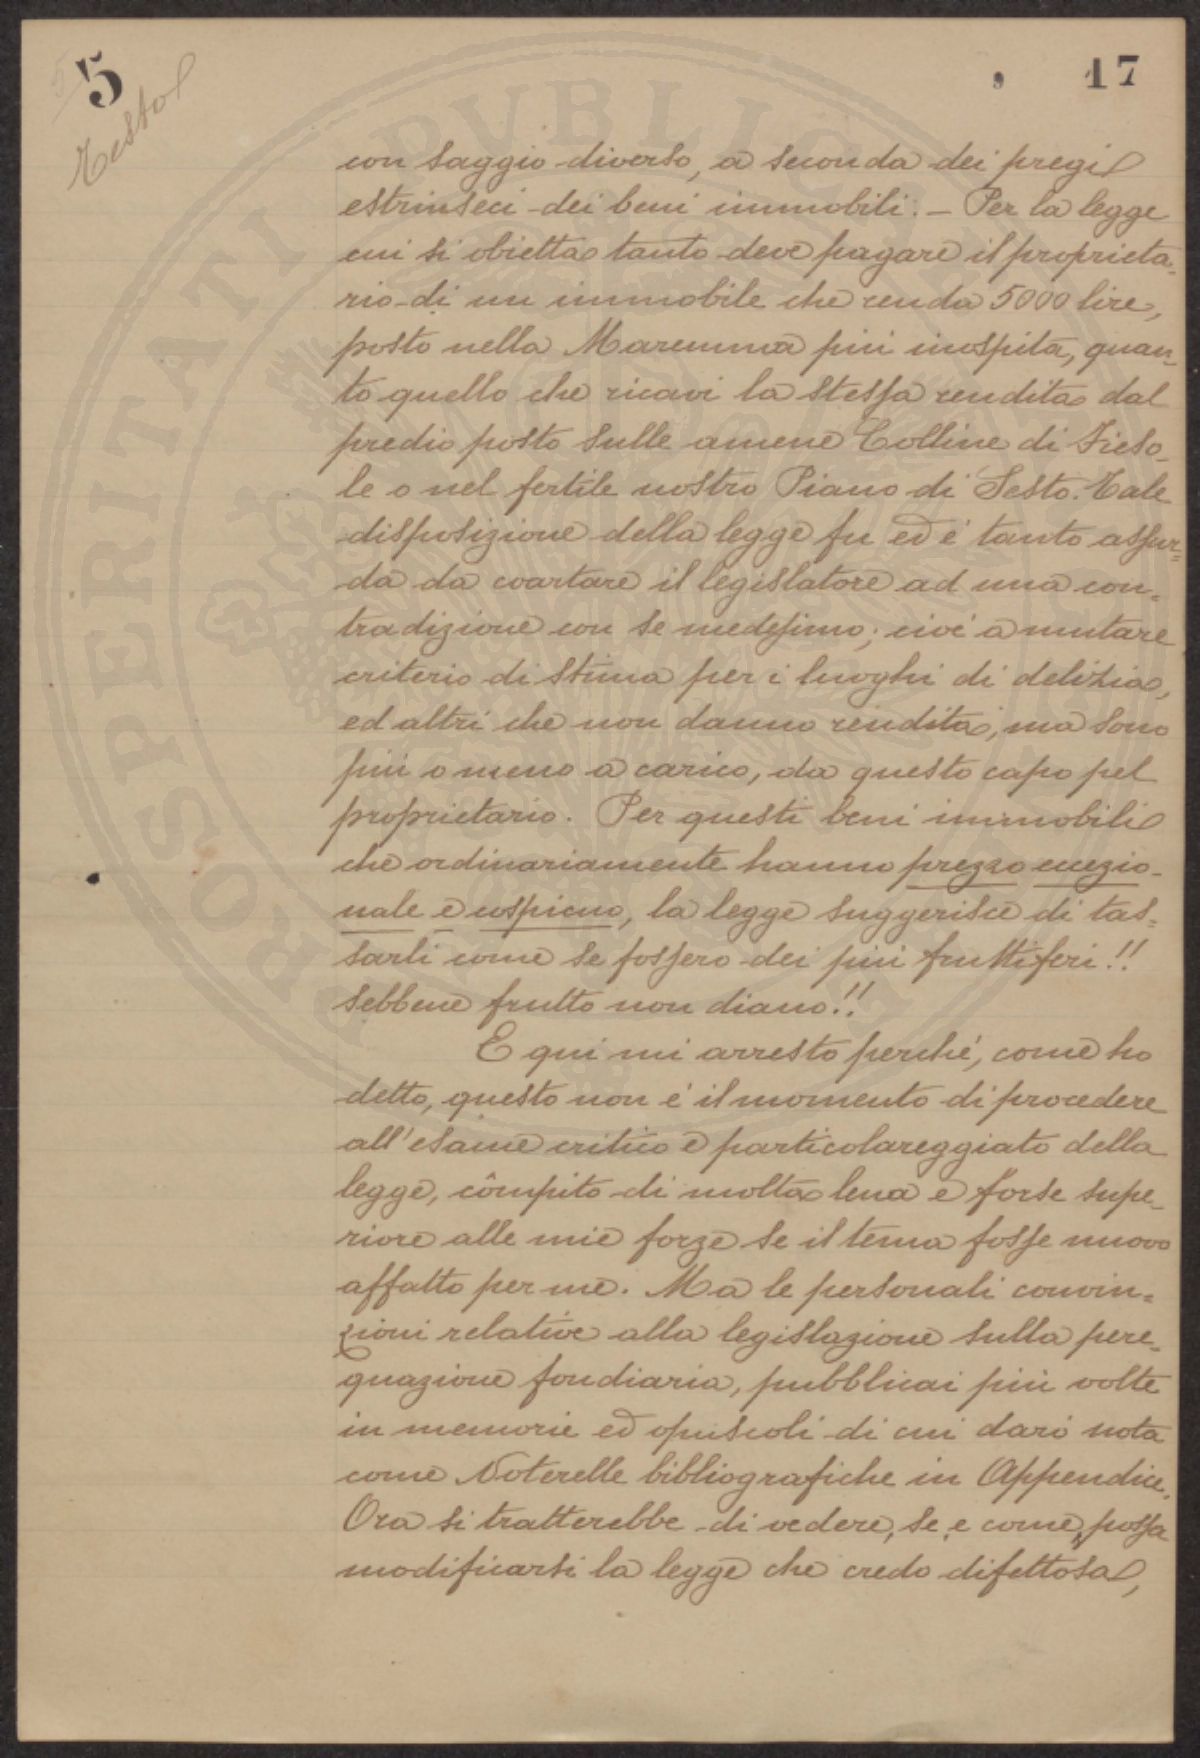 5
17
Testo
con saggio diverso, a seconda dei pregi
estrinseci dei beni immobili. — Per la legge
cui si obietta tanto deve pagare il proprieta-
rio di un immobile che renda 5000 lire,
posto nella Maremma più inospita, quan-
to quello che ricavi la stessa rendita dal
predio posto sulle amene Colline di Fieso-
le o nel fertile nostro Piano di Sesto. Tale
disposizione della legge fu ed é tanto assur-
da da coartare il legislatore ad una con-
tradizione con se medesimo; cioé a mutare
criterio di stima per i luoghi di delizia,
ed altri che non danno rendita, ma sono
più o meno a carico, da questo capo pel
proprietario. Per questi beni immobili
che ordinariamente hanno prezzo eccezio-
nale e cospicuo, la legge suggerisce di tas-
sarli come se fossero dei più fruttiferi!!
sebbene frutto non diano!!
E qui mi arresto perché, come ho
detto, questo non é il momento di procedere
all'esame critico e particolareggiato della
legge, cômpito di molta lena e forse supe-
riore alle mie forze se il tema fosse nuovo
affatto per me. Ma le personali convin-
zioni relative alla legislazione sulla pere-
quazione fondiaria, pubblicai più volte
in memorie ed opuscoli di cui darò nota
come Noterelle bibliografiche in Appendice.
Ora si tratterebbe di vedere, se, e come, possa
modificarsi la legge che credo difettosa,
PROSPERITATI PVBLICAE